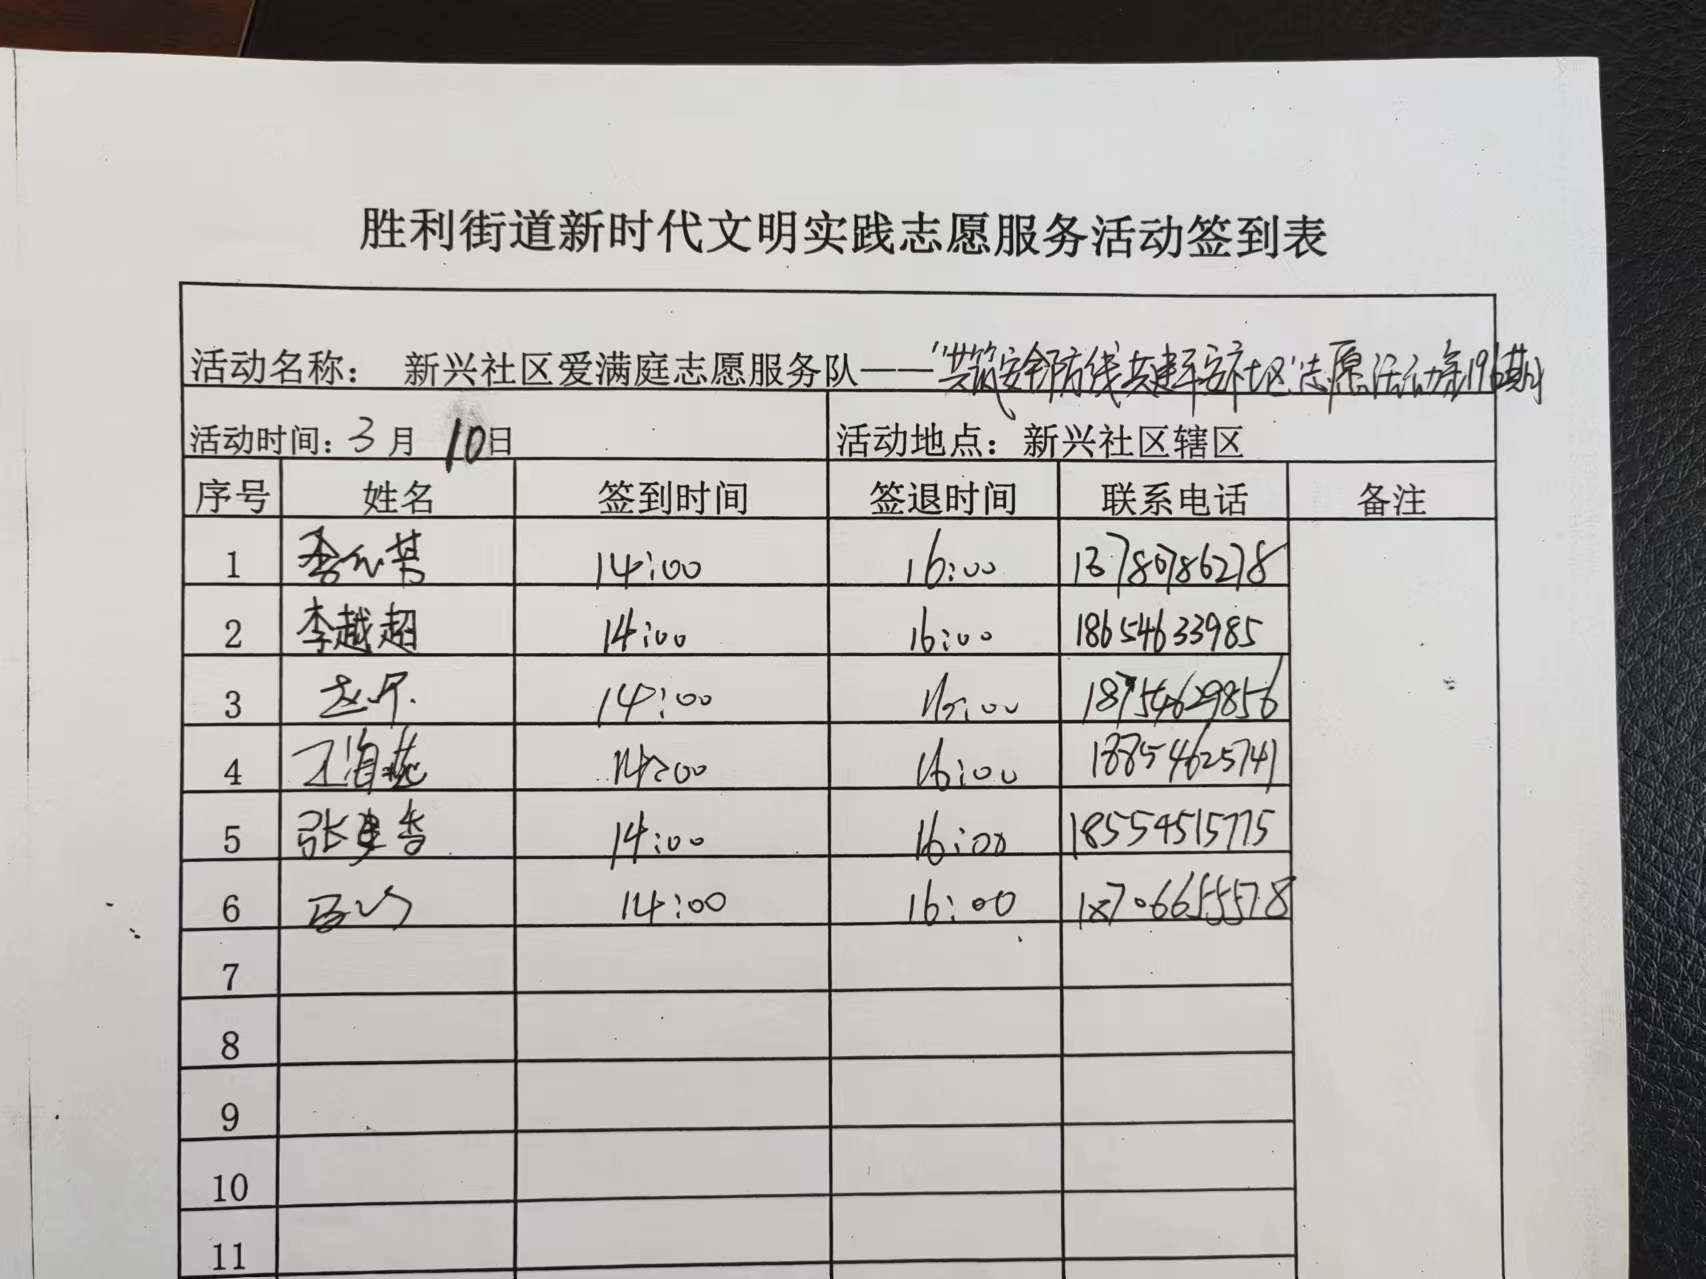 胜利街道新时代文明实践志愿服务活动签到表
活动名称： 新兴社区爱满庭志愿服务队——“共筑安全防线共建平安社区”志愿活动第196期
活动时间：3月 10日 活动地点：新兴社区辖区
序号 姓名 签到时间 签退时间 联系电话 备注
1 14:00 16:00 13780786278
2 李越超 14:00 16:00 18654633985
3 14:00 16:00 18754629856
4 14:00 16:00 18854625741
5 张 香 14:00 16:00 18554515775
6 14:00 16:00 18706655578
7
8
9
10
11